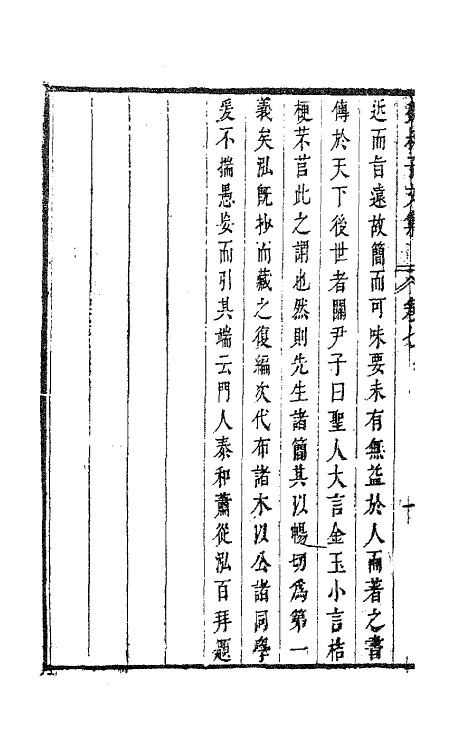 近而旨遠故簡而可味要未有無益於人而著之書
傳於天下後世者關尹子曰聖人大言金玉小言桔
梗芣苢此之謂也然則先生諸簡其以暢切爲第一
義矣泓旣抄而藏之復編次代布諸木以公諸同學
爰不揣愚妄而引其端云門人泰和蕭從泓百拜題